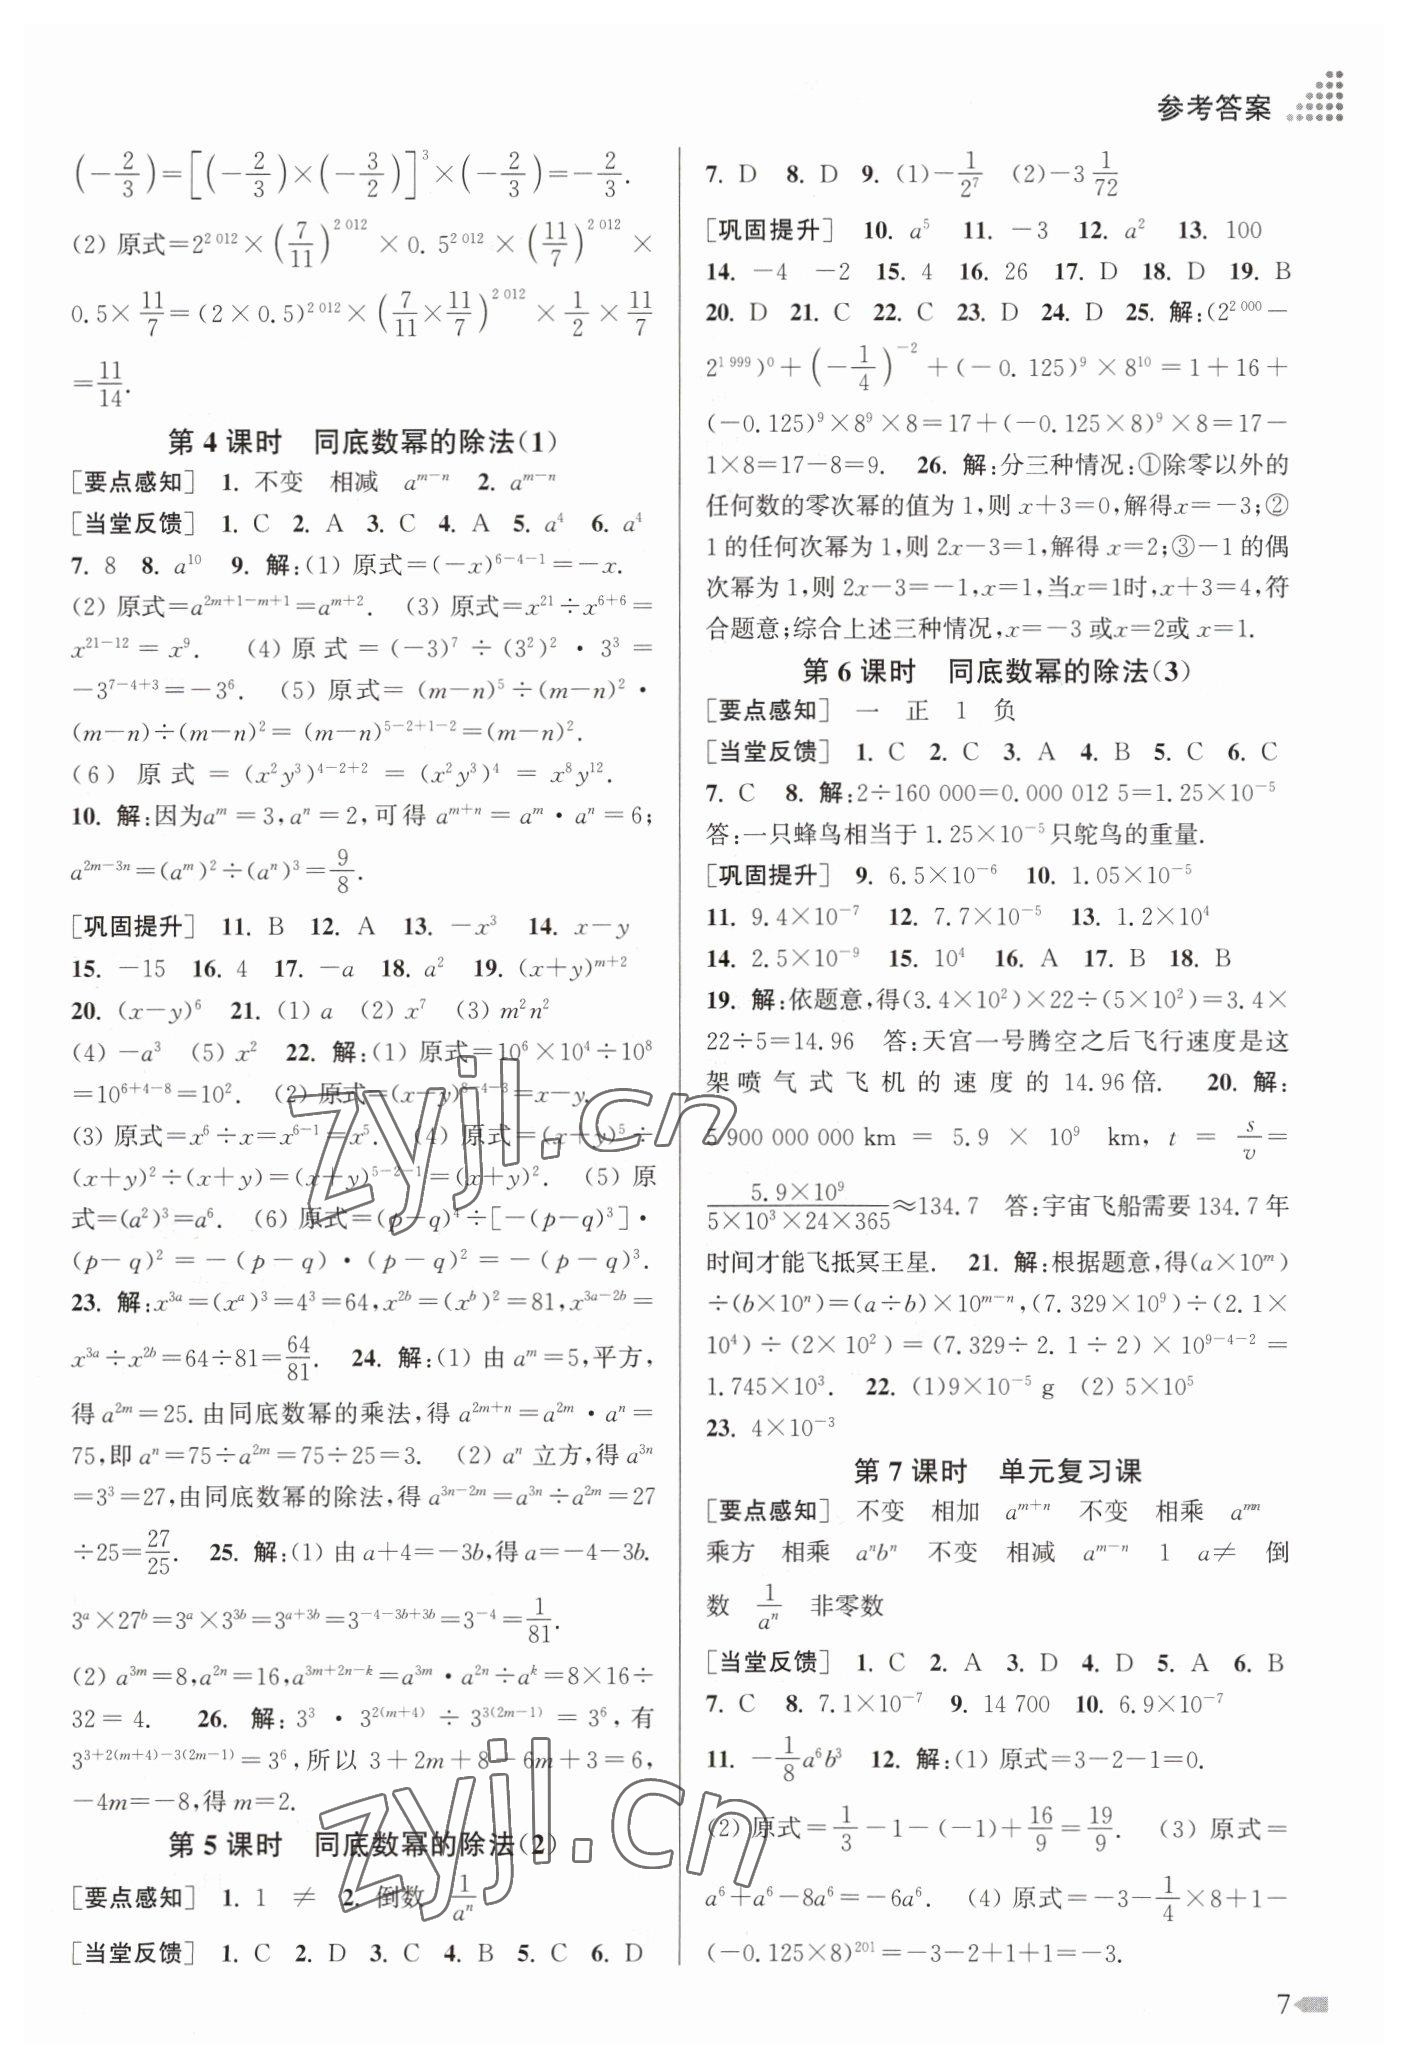 参考答案
(−2/3)=[(−2/3)×(−3/2)]³×(−2/3)=−2/3.
(2) 原式=2^{2 012}×(7/11)^{2 012}×0. 5^{2 012}×(11/7)^{2 012}×
0.5×11/7=(2×0.5)^{2 012}×(7/11×11/7)^{2 012}×1/2×11/7
=11/14.
第 4 课时 同底数幂的除法(1)
[要点感知] 1. 不变 相减 a^{m−n} 2. a^{m−n}
[当堂反馈] 1. C 2. A 3. C 4. A 5. a⁴ 6. a⁴
7. 8 8. a^{10} 9. 解:(1) 原式=(−x)^{6−4−1}=−x.
(2) 原式=a^{2m+1−m+1}=a^{m+2}. (3) 原式=x^{21}÷x^{6+6}=
x^{21−12}=x⁹. (4) 原式=(−3)⁷÷(3²)²·3³=
−3^{7−4+3}=−3⁶. (5) 原式=(m−n)⁵÷(m−n)²·
(m−n)÷(m−n)²=(m−n)^{5−2+1−2}=(m−n)².
(6) 原式=(x²y³)^{4−2+2}=(x²y³)⁴=x⁸y^{12}.
10. 解:因为a^m=3,a^n=2,可得 a^{m+n}=a^m·a^n=6;
a^{2m−3n}=(a^m)²÷(a^n)³=9/8.
[巩固提升] 11. B 12. A 13. −x³ 14. x−y
15. −15 16. 4 17. −a 18. a² 19. (x+y)^{m+2}
20. (x−y)⁶ 21. (1) a (2) x⁷ (3) m²n²
(4) −a³ (5) x² 22. 解:(1) 原式=10⁶×10⁴÷10⁸
=10^{6+4−8}=10². (2) 原式=(x−y)^{8−4−3}=x−y.
(3) 原式=x⁶÷x=x^{6−1}=x⁵. (4) 原式=(x+y)⁵÷
(x+y)²÷(x+y)=(x+y)^{5−2−1}=(x+y)². (5) 原
式=(a²)³=a⁶. (6) 原式=(p−q)⁴÷[−(p−q)³]·
(p−q)²=−(p−q)·(p−q)²=−(p−q)³.
23. 解:x^{3a}=(x^a)³=4³=64,x^{2b}=(x^b)²=81,x^{3a−2b}=
x^{3a}÷x^{2b}=64÷81=64/81. 24. 解:(1) 由 a^m=5,平方,
得 a^{2m}=25.由同底数幂的乘法,得 a^{2m+n}=a^{2m}·a^n=
75,即 a^n=75÷a^{2m}=75÷25=3. (2) a^n 立方,得 a^{3n}
=3³=27,由同底数幂的除法,得 a^{3n−2m}=a^{3n}÷a^{2m}=27
÷25=27/25. 25. 解:(1) 由 a+4=−3b,得 a=−4−3b.
3^a×27^b=3^a×3^{3b}=3^{a+3b}=3^{−4−3b+3b}=3^{−4}=1/81.
(2) a^{3m}=8,a^{2n}=16,a^{3m+2n−k}=a^{3m}·a^{2n}÷a^k=8×16÷
32=4. 26. 解:3³·3^{2(m+4)}÷3^{3(2m−1)}=3⁶,有
3^{3+2(m+4)−3(2m−1)}=3⁶,所以 3+2m+8−6m+3=6,
−4m=−8,得 m=2.
第 5 课时 同底数幂的除法(2)
[要点感知] 1. 1 ≠ 2. 倒数 1/a^n
[当堂反馈] 1. C 2. D 3. C 4. B 5. C 6. D
7. D 8. D 9. (1)−1/2⁷ (2)−3 1/72
[巩固提升] 10. a⁵ 11. −3 12. a² 13. 100
14. −4 −2 15. 4 16. 26 17. D 18. D 19. B
20. D 21. C 22. C 23. D 24. D 25. 解:(2^{2 000}−
2^{1 999})⁰+(−1/4)^{−2}+(−0. 125)⁹×8^{10}=1+16+
(−0.125)⁹×8⁹×8=17+(−0.125×8)⁹×8=17−
1×8=17−8=9. 26. 解:分三种情况:①除零以外的
任何数的零次幂的值为 1,则 x+3=0,解得x=−3;②
1 的任何次幂为 1,则 2x−3=1,解得 x=2;③−1 的偶
次幂为 1,则 2x−3=−1,x=1,当x=1时,x+3=4,符
合题意;综合上述三种情况,x=−3 或x=2或 x=1.
第 6 课时 同底数幂的除法(3)
[要点感知] 一 正 1 负
[当堂反馈] 1. C 2. C 3. A 4. B 5. C 6. C
7. C 8. 解:2÷160 000=0. 000 012 5=1.25×10^{−5}
答:一只蜂鸟相当于 1.25×10^{−5}只鸵鸟的重量.
[巩固提升] 9. 6.5×10^{−6} 10. 1.05×10^{−5}
11. 9.4×10^{−7} 12. 7.7×10^{−5} 13. 1.2×10⁴
14. 2.5×10^{−9} 15. 10⁴ 16. A 17. B 18. B
19. 解:依题意,得(3.4×10²)×22÷(5×10²)=3.4×
22÷5=14.96 答:天宫一号腾空之后飞行速度是这
架喷气式飞机的速度的 14.96倍. 20. 解:
5 900 000 000 km = 5.9 × 10⁹ km, t = s/v =
5.9×10⁹/(5×10³×24×365)≈134.7 答:宇宙飞船需要 134.7 年
时间才能飞抵冥王星. 21. 解:根据题意,得(a×10^m)
÷(b×10^n)=(a÷b)×10^{m−n},(7.329×10⁹)÷(2.1×
10⁴)÷(2×10²)=(7.329÷2.1÷2)×10^{9−4−2}=
1.745×10³. 22. (1)9×10^{−5} g (2) 5×10⁵
23. 4×10^{−3}
第 7 课时 单元复习课
[要点感知] 不变 相加 a^{m+n} 不变 相乘 a^{mn}
乘方 相乘 a^nb^n 不变 相减 a^{m−n} 1 a≠ 倒
数 1/a^n 非零数
[当堂反馈] 1. C 2. A 3. D 4. D 5. A 6. B
7. C 8. 7.1×10^{−7} 9. 14 700 10. 6.9×10^{−7}
11. −1/8a⁶b³ 12. 解:(1) 原式=3−2−1=0.
(2) 原式=1/3−1−(−1)+16/9=19/9. (3) 原式=
a⁶+a⁶−8a⁶=−6a⁶. (4) 原式=−3−1/4×8+1−
(−0.125×8)^{201}=−3−2+1+1=−3.
7
zyjl.cn
zyjl.cn